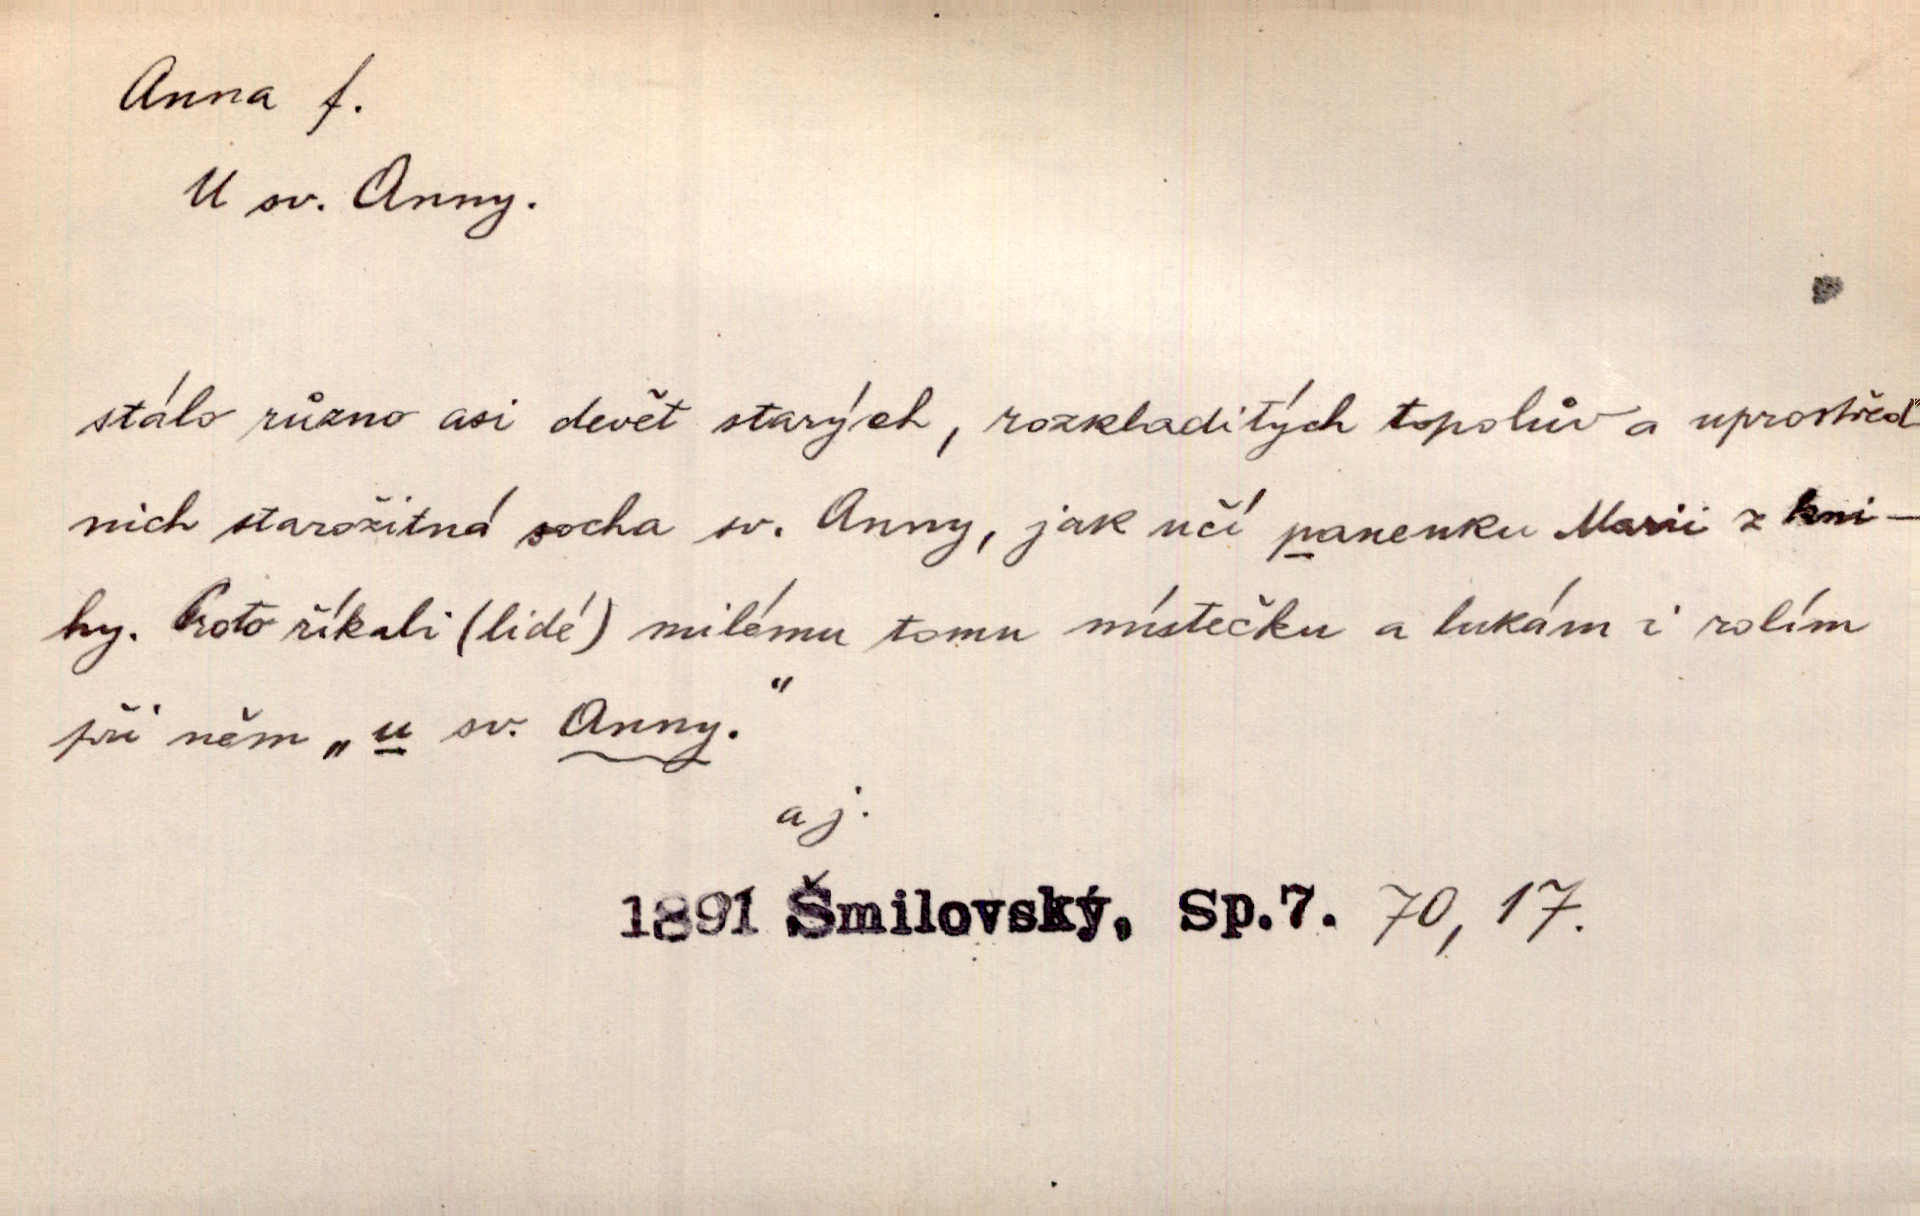 Anna f.
U sv. Anny.
stálo různo asi devět starých, rozkladitých topolův a uprostřed
nich starožitná socha sv. Anny, jak učí panenku Marii z kni-
hy. Proto říkali (lidé) milému tomu místečku a lukám i rolím
při něm „u sv. Anny.“
a j.
1891 Šmilovský, Sp.7. 70, 17.